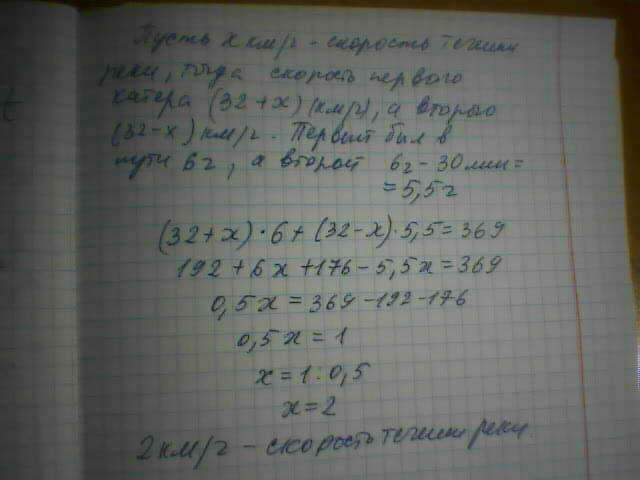 Пусть x км/ч - скорость течения
реки, тогда скорость первого
катера (32+x) (км/ч), а второго
(32-x) км/ч. Первый был в
пути 6ч, а второй 6ч - 30 мин =
= 5,5ч
(32+x)·6+(32-x)·5,5=369
192+6x+176-5,5x=369
0,5x=369-192-176
0,5x=1
x=1:0,5
x=2
2км/ч - скорость течения реки.